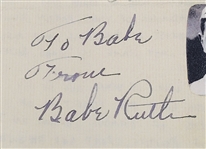 To Babe
From
Babe Ruth